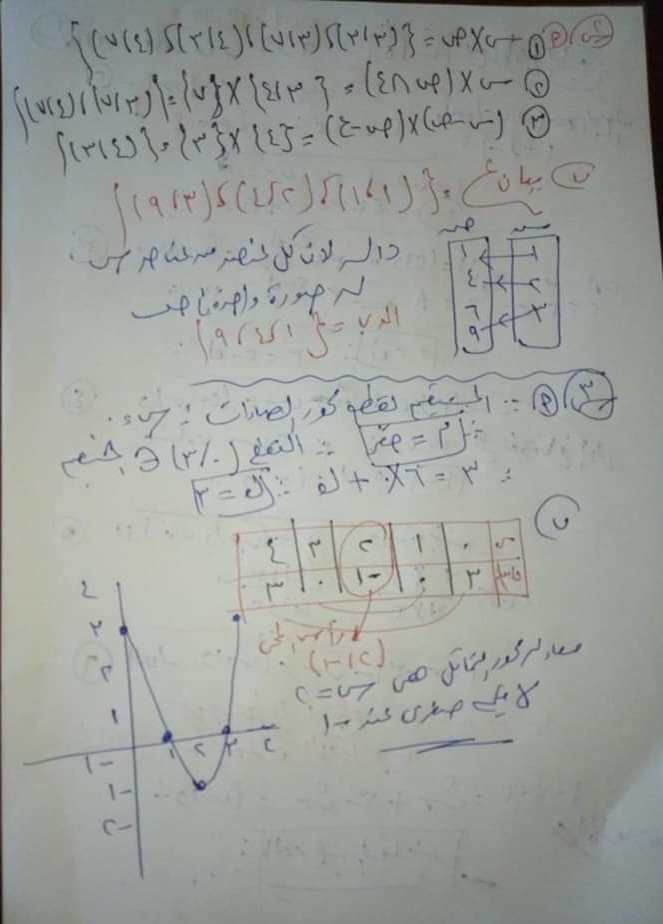 ① س × ص = {(٣،٣)، (٧،٣)، (٣،٤)، (٧،٤)}
② س × (ص ∩ ع) = {٤،٣} × {٧} = {(٧،٣)، (٧،٤)}
③ (س - ص) × (ص - ع) = {٤} × {٣} = {(٣،٤)}
ب بيان ع = {(١،١)، (٤،٢)، (٩،٣)}
س ص
١ ١
٢ ٤
٣ ٦
٩
دالة لأن كل عنصر من عناصر س
له صورة واحدة في ص
المدى = {١، ٤، ٩}
س٣ P ∵ المستقيم يقطع محور الصادات
∴ م = صفر ∵ النقطة (٠،٣) ∈ المستقيم
∴ ٣ = ٦ × ٠ + ك ∴ ك = ٣
ب
س ٠ ١ ٢ ٣ ٤
ص ٣ ٠ -١ ٠ ٣
رأس المنحنى
(٢، -١)
معادلة محور التماثل هى س = ٢
القيمة صغرى عند -١
٤
٣
٢
١
١ ٢ ٣ ٤
-١
-١
-٢